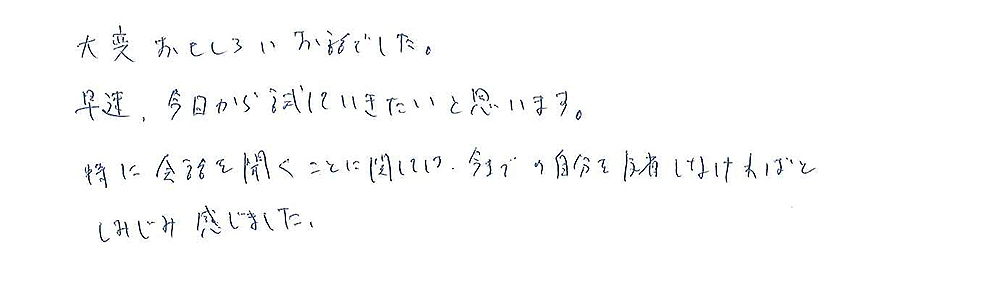 大変おもしろいお話でした。
早速、今日から試していきたいと思います。
特に会話を聞くことに関しては、今までの自分を反省しなければと
しみじみ感じました。